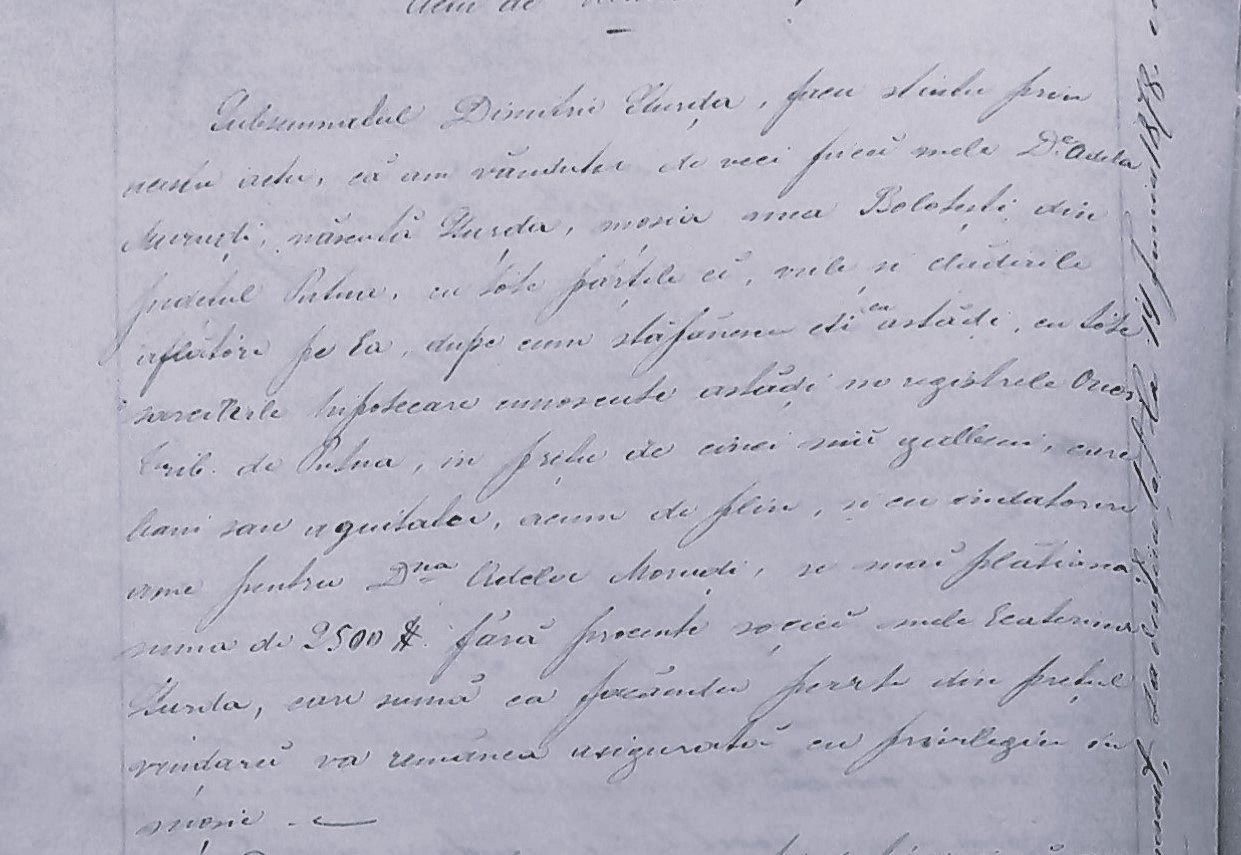 Actu de
Subsemnatul Dimitrie Sturdza, facu sciutu prin
acestu actu, că am vândutu de veci fiicei mele D.nei Adela
Moruzi, născută Sturdza, mosia mea Bolotesti din
judetul Putna, cu tóte părtile ei, viele si clădirile
aflătóre pe Ea, dupe cum stăpânescu si eu astădi, cu tóte
sarcinele hipotecare cunoscute astădi in registrele Onor
Trib. de Putna, in pretu de cinci mii galbeni, care
bani sau aquitatu, acum de plin, si cu indatorire
pentru D.na Adela Moruzi, se mai plătéscă
suma de 2500 # fără procente sociei mele Ecaterina
Sturdza, care sumă ca făcându parte din pretul
vindării va remânea asigurată cu privilegiu in
mosie
sa inființat la 14 Juniu 1878.